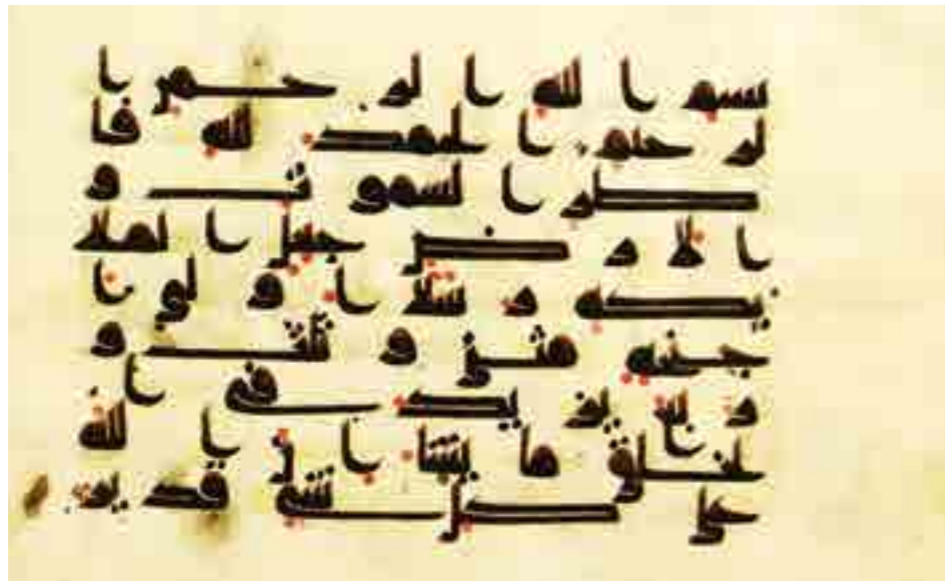 بسم الله الرحمن ا
لرحيم الحمد لله فا
طر السموت و
الارض جعل الملا
ئكة رسلا اولى ا
جنحة مثنى وثلث و
ربع يزيد فى ا
لخلق ما يشا ان الله
على كل شى قدير